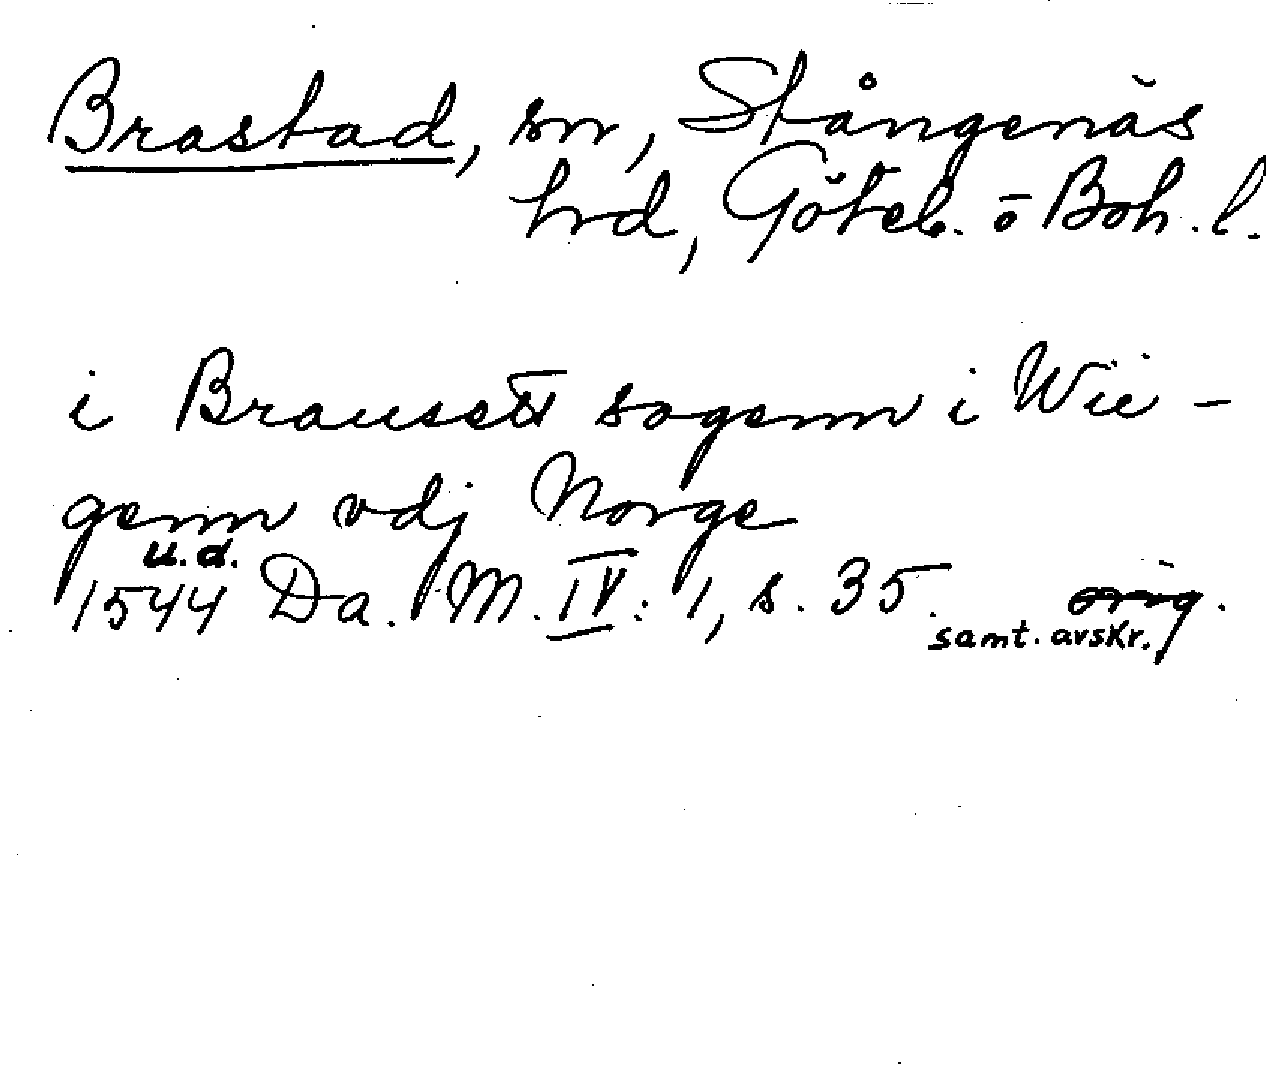 Brastad, sn, Stångenäs
hrd, Göteb. o Boh. l.
i Brausett sogenn i Wii-
genn vdj Norge
u.d.
1544 Da. M. IV: 1, s. 35. orig.
samt. avskr.